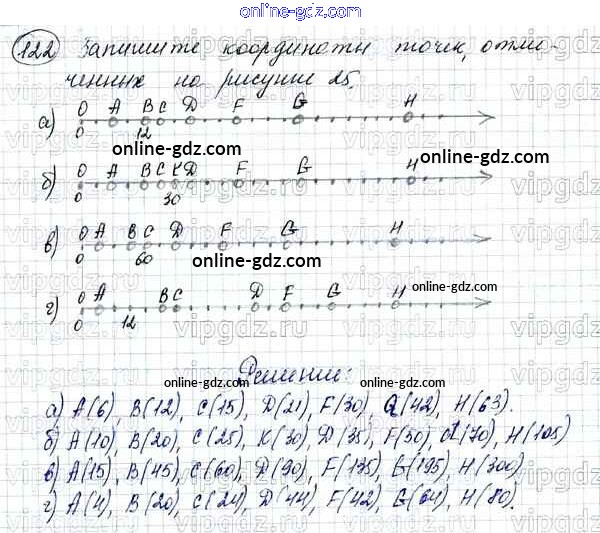 online-gdz.com
122 Запишите координаты точек, отме-
ченных на рисунке 25.
а) O A B C D F G H
0 12
online-gdz.com online-gdz.com
б) O A B C K D F G H
0 30
в) O A B C D F G H
0 60
online-gdz.com
online-gdz.com
г) O A B C D F G H
0 12
Решение:
online-gdz.com online-gdz.com
а) A(6), B(12), C(15), D(21), F(30), G(42), H(63).
б) A(10), B(20), C(25), K(30), D(35), F(50), G(70), H(105)
в) A(15), B(45), C(60), D(90), F(135), G(195), H(300).
г) A(4), B(20), C(24), D(44), F(42), G(64), H(80).
online-gdz.com